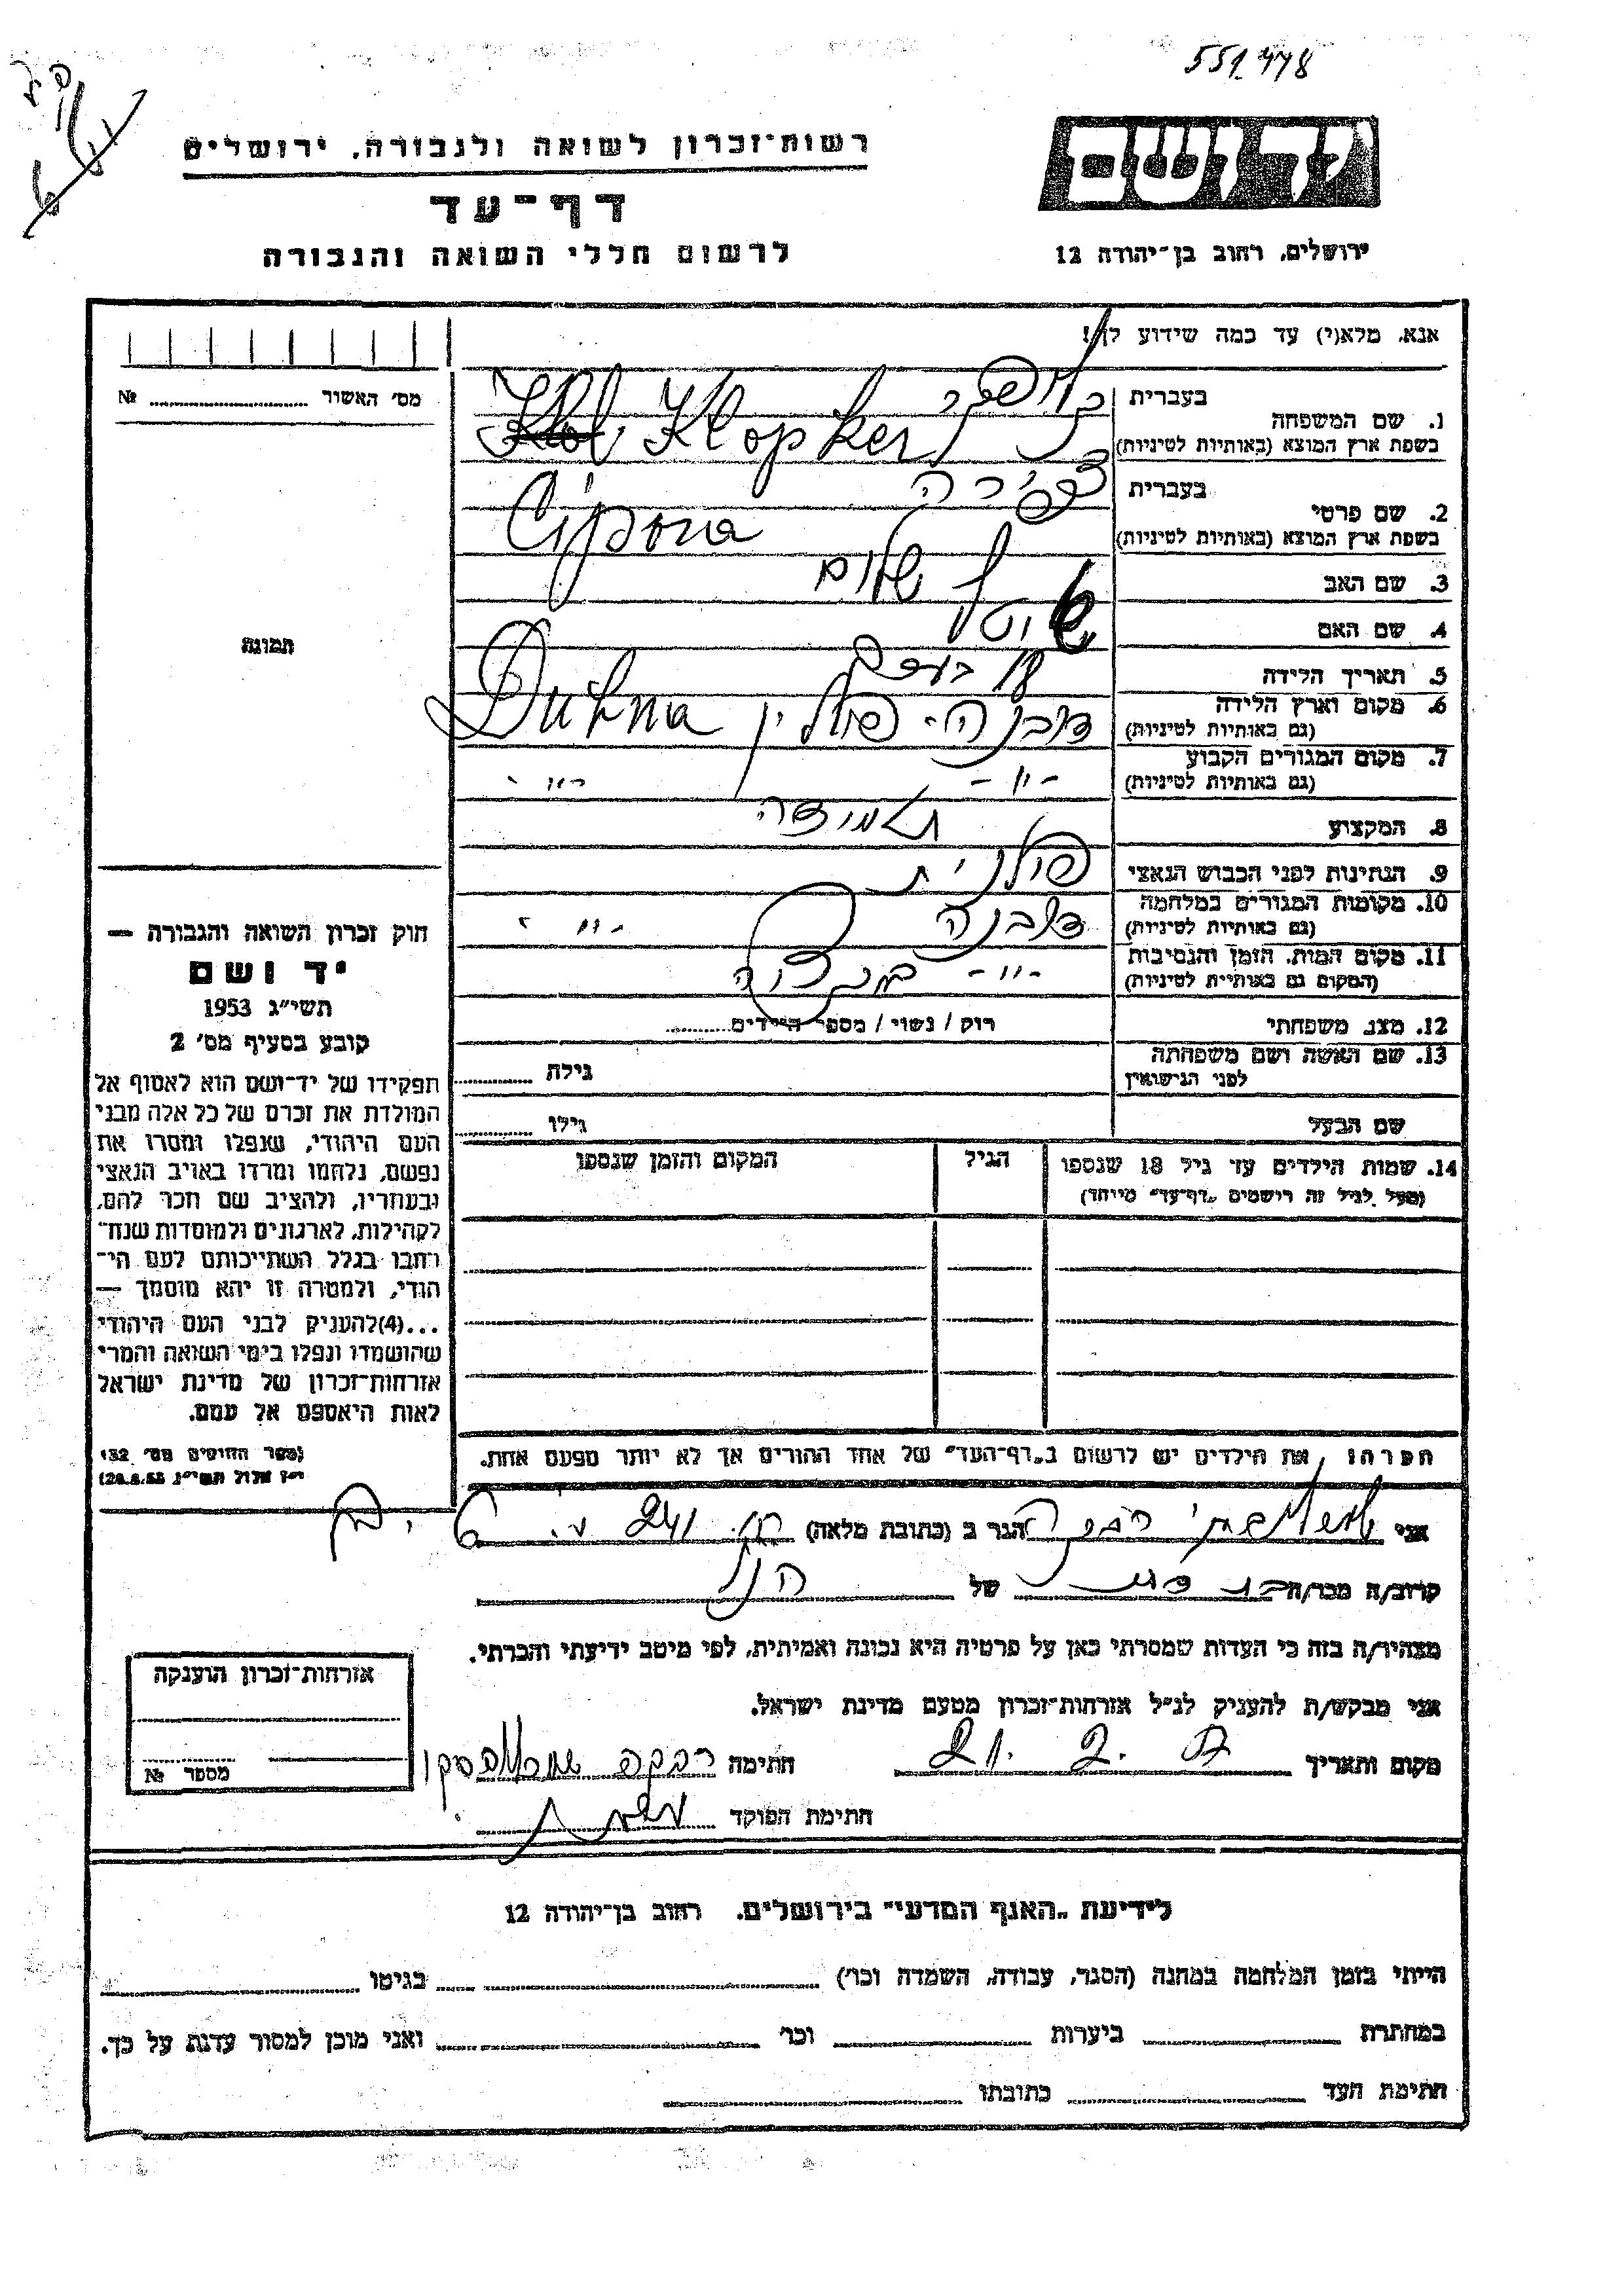 551448
יד ושם
רשות־זכרון לשואה ולגבורה, ירושלים
דף־עד
לרשום חללי השואה והגבורה
ירושלים, רחוב בן־יהודה 12
אנא, מלא(י) עד כמה שידוע לך!
מס׳ האשור № 
1. שם המשפחה
בעברית
בשפת ארץ המוצא (באותיות לטיניות) Klopker
2. שם פרטי
בעברית צפורה
בשפת ארץ המוצא (באותיות לטיניות) Cipora
3. שם האב שלום
4. שם האם
5. תאריך הלידה
6. מקום וארץ הלידה
(גם באותיות לטיניות) דובנה - פולין Dubna
7. מקום המגורים הקבוע
(גם באותיות לטיניות) -"- -"-
8. המקצוע תלמידה
9. הנתינות לפני הכבוש הנאצי פולנית
10. מקומות המגורים במלחמה
(גם באותיות לטיניות) דובנה -"-
11. מקום המות, הזמן והנסיבות
(המקום גם באותיות לטיניות) -"-
12. מצב משפחתי רוק / נשוי / מספר הילדים
13. שם האשה ושם משפחתה
לפני הנישואין גילה
שם הבעל גילו
14. שמות הילדים עד גיל 18 שנספו
(מעל לגיל זה רושמים „דף־עד״ מיוחד)
הגיל
המקום והזמן שנספו
הערה: את הילדים יש לרשום ב„דף־העד״ של אחד ההורים אך לא יותר מפעם אחת.
תמונה
חוק זכרון השואה והגבורה —
יד ושם
תשי״ג 1953
קובע בסעיף מס׳ 2
תפקידו של יד־ושם הוא לאסוף אל
המולדת את זכרם של כל אלה מבני
העם היהודי, שנפלו ומסרו את
נפשם, נלחמו ומרדו באויב הנאצי
ובעוזריו, ולהציב שם וזכר להם,
לקהילות, לארגונים ולמוסדות שנח־
רבו בגלל השתייכותם לעם הי־
הודי, ולמטרה זו יהא מוסמך —
...(4) להעניק לבני העם היהודי
שהושמדו ונפלו בימי השואה והמרי
אזרחות־זכרון של מדינת ישראל
לאות היאספם אל עמם.
(ספר החוקים מס׳ 132
י״ז אלול תשי״ג 28.8.53)
אני הגר ב (כתובת מלאה)
קרוב/ה מכר/ה של
מצהיר/ה בזה כי העדות שמסרתי כאן על פרטיה היא נכונה ואמיתית, לפי מיטב ידיעתי והכרתי.
אני מבקש/ת להעניק לנ״ל אזרחות־זכרון מטעם מדינת ישראל.
מקום ותאריך 21. 2. 57 חתימה רבקה
חתימת הפוקד
אזרחות־זכרון הוענקה
מספר №
לידיעת „האגף המדעי״ בירושלים, רחוב בן־יהודה 12
הייתי בזמן המלחמה במחנה (הסגר, עבודה, השמדה וכו׳) בגיטו
במחתרת ביערות וכו׳ ואני מוכן למסור עדות על כך.
חתימת העד כתובתו